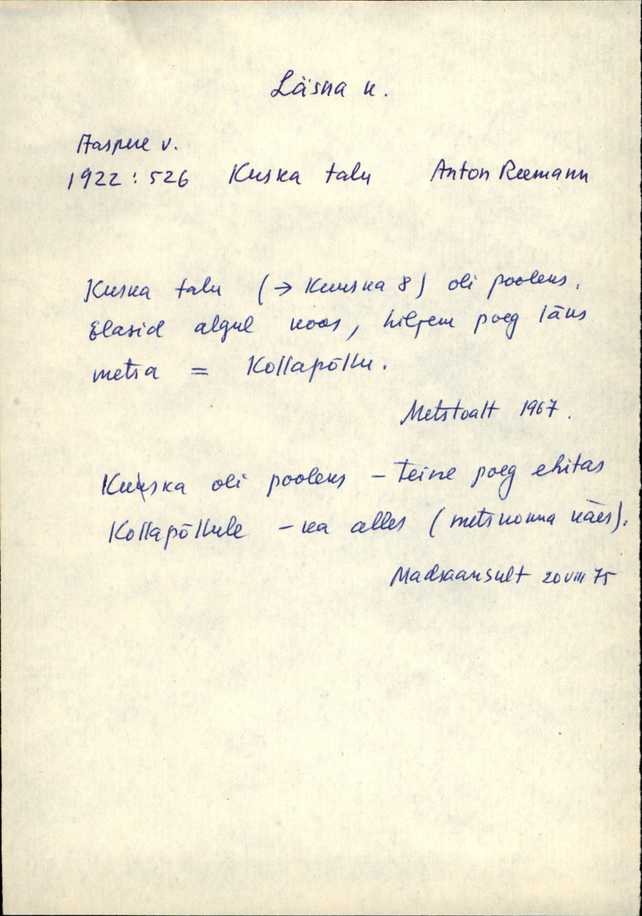 Läsna k.
Aaspere v.
1922: 526 Kuska talu Anton Reemann
Kuska talu (→ Kuuska 8) oli pooleks.
Elasid algul koos, hiljem poeg läks
metsa = Kollapõllu.
Metstoalt 1967.
Kuuska oli pooleks – teine poeg ehitas
Kollapõllule – ka alles (metskonna käes).
Madisaansult 20 VIII 75